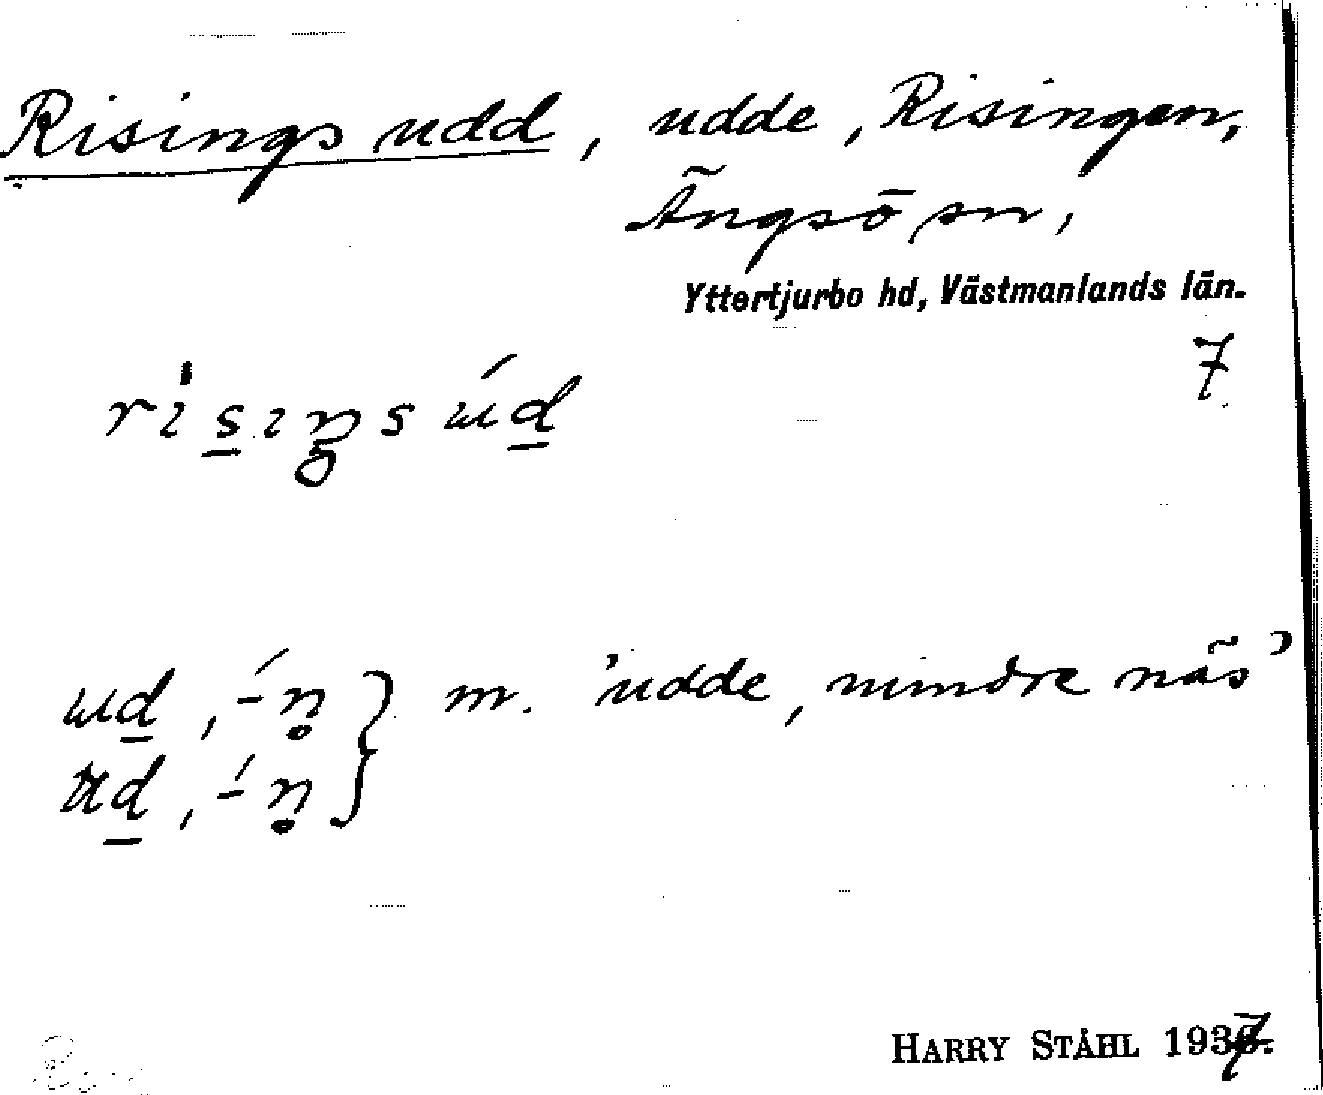 Risings udd, udde, Risingen,
Ängsö sn,
Yttertjurbo hd, Västmanlands län.
7
risiŋs úd
ud, -́n̥ } m. 'udde, mindre näs'
ʉd, -́n̥
HARRY STÅHL 1937.